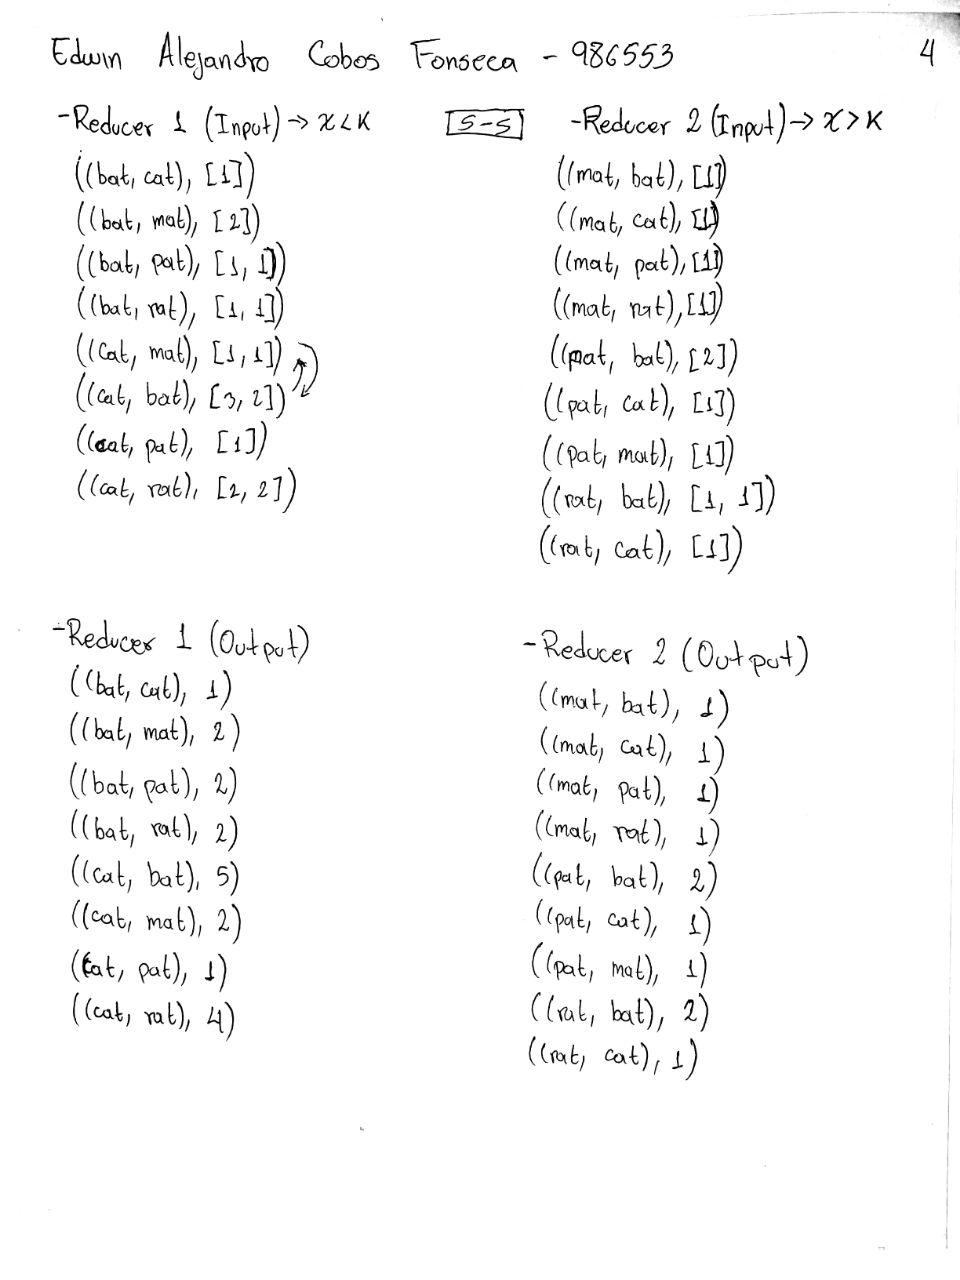 Edwin Alejandro Cobos Fonseca - 986553
4
-Reducer 1 (Input) → x<K
((bat, cat), [1])
((bat, mat), [2])
((bat, pat), [1, 1])
((bat, rat), [1, 1])
((cat, mat), [1, 1])
((cat, bat), [3, 2])
((cat, pat), [1])
((cat, rat), [2, 2])
S-S
-Reducer 2 (Input) → x>K
((mat, bat), [1])
((mat, cat), [1])
((mat, pat), [1])
((mat, rat), [1])
((pat, bat), [2])
((pat, cat), [1])
((pat, mat), [1])
((rat, bat), [1, 1])
((rat, cat), [1])
-Reducer 1 (Output)
((bat, cat), 1)
((bat, mat), 2)
((bat, pat), 2)
((bat, rat), 2)
((cat, bat), 5)
((cat, mat), 2)
((cat, pat), 1)
((cat, rat), 4)
-Reducer 2 (Output)
((mat, bat), 1)
((mat, cat), 1)
((mat, pat), 1)
((mat, rat), 1)
((pat, bat), 2)
((pat, cat), 1)
((pat, mat), 1)
((rat, bat), 2)
((rat, cat), 1)